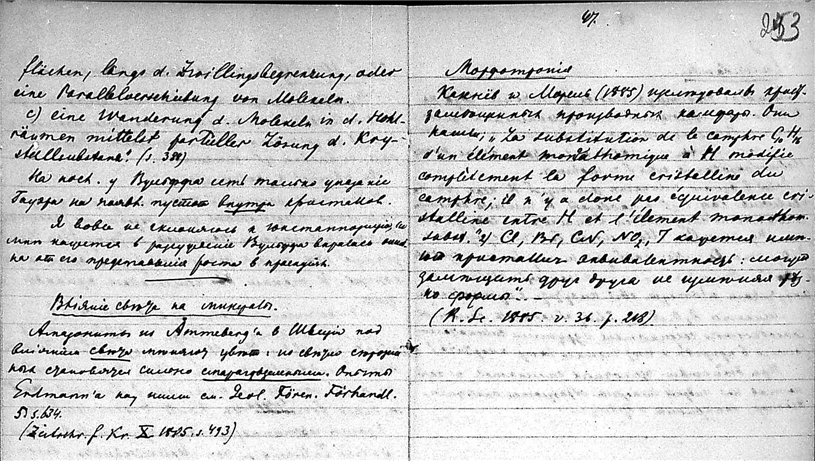 flächen, längs d. Zwillingsbegrenzung, oder
eine Parallelverschiebung von Molekeln.
c) eine Wanderung d. Molekeln in d. Hohl-
räumen mittelst partieller Lösung d. Kry-
stallsubstanz". (s. 388)
На посл. у Вульфа есть только указание
на пустот внутри кристалов.
Я вовсе не склоняюсь к
кажется в разрушение
на от его представления роста в
Вліяніе свѣта на минералы.
Амазониты из Ammeberg'a в Швеціи под
вліянием свѣта меняют цвѣт: из свѣтло
ных становятся сильно смарагдозелеными. Опыты
Erdmann'a над ними см. Geol. Fören. Förhandl.
5) s. 634.
(Zeitschr. f. Kr. X 1885. s. 493)
47.
253
Морфотропія
и Морель (1885) изслѣдовали крист.
замѣщенных производных камфары. Они
нашли: „La substitution de le camphre C₁₀ H₁₆
d'un élément monoathomique à H modifie
complètement la forme cristalline du
camphre; il n'y a donc pas équivalence cri-
stalline entre H et l'élément monoathom.
subst." У Cl, Br, CN, NO₂, I кажется
кристаллич. эквивалентность: могут
замѣщать друг друга не измѣняя
но формы. —
(R. Sc. 1885. v. 36. p. 218)